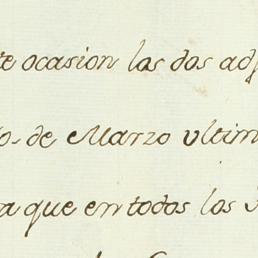 te ocasion las dos adj
o de Marzo ultim
a que en todos los